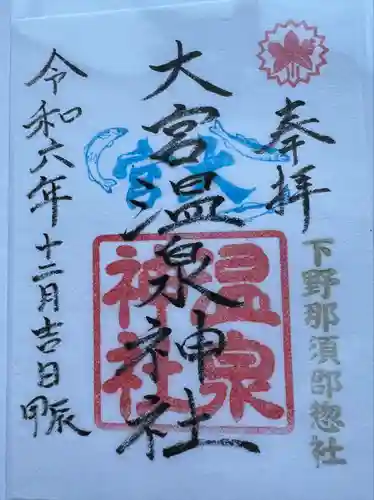 奉拝
下野那須郡惣社
大宮温泉神社
大宮
温泉
神社
令和六年十二月吉日
甲辰